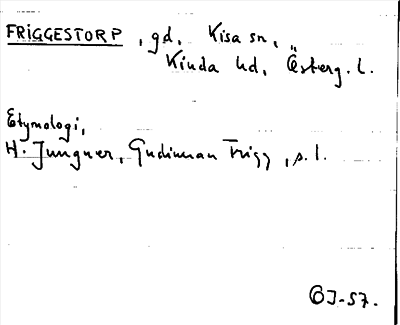 FRIGGESTORP, gd, Kisa sn,
Kinda hd, Österg. l.
Etymologi,
H. Jungner, Gudinnan Frigg, s. 1.
OJ-57.